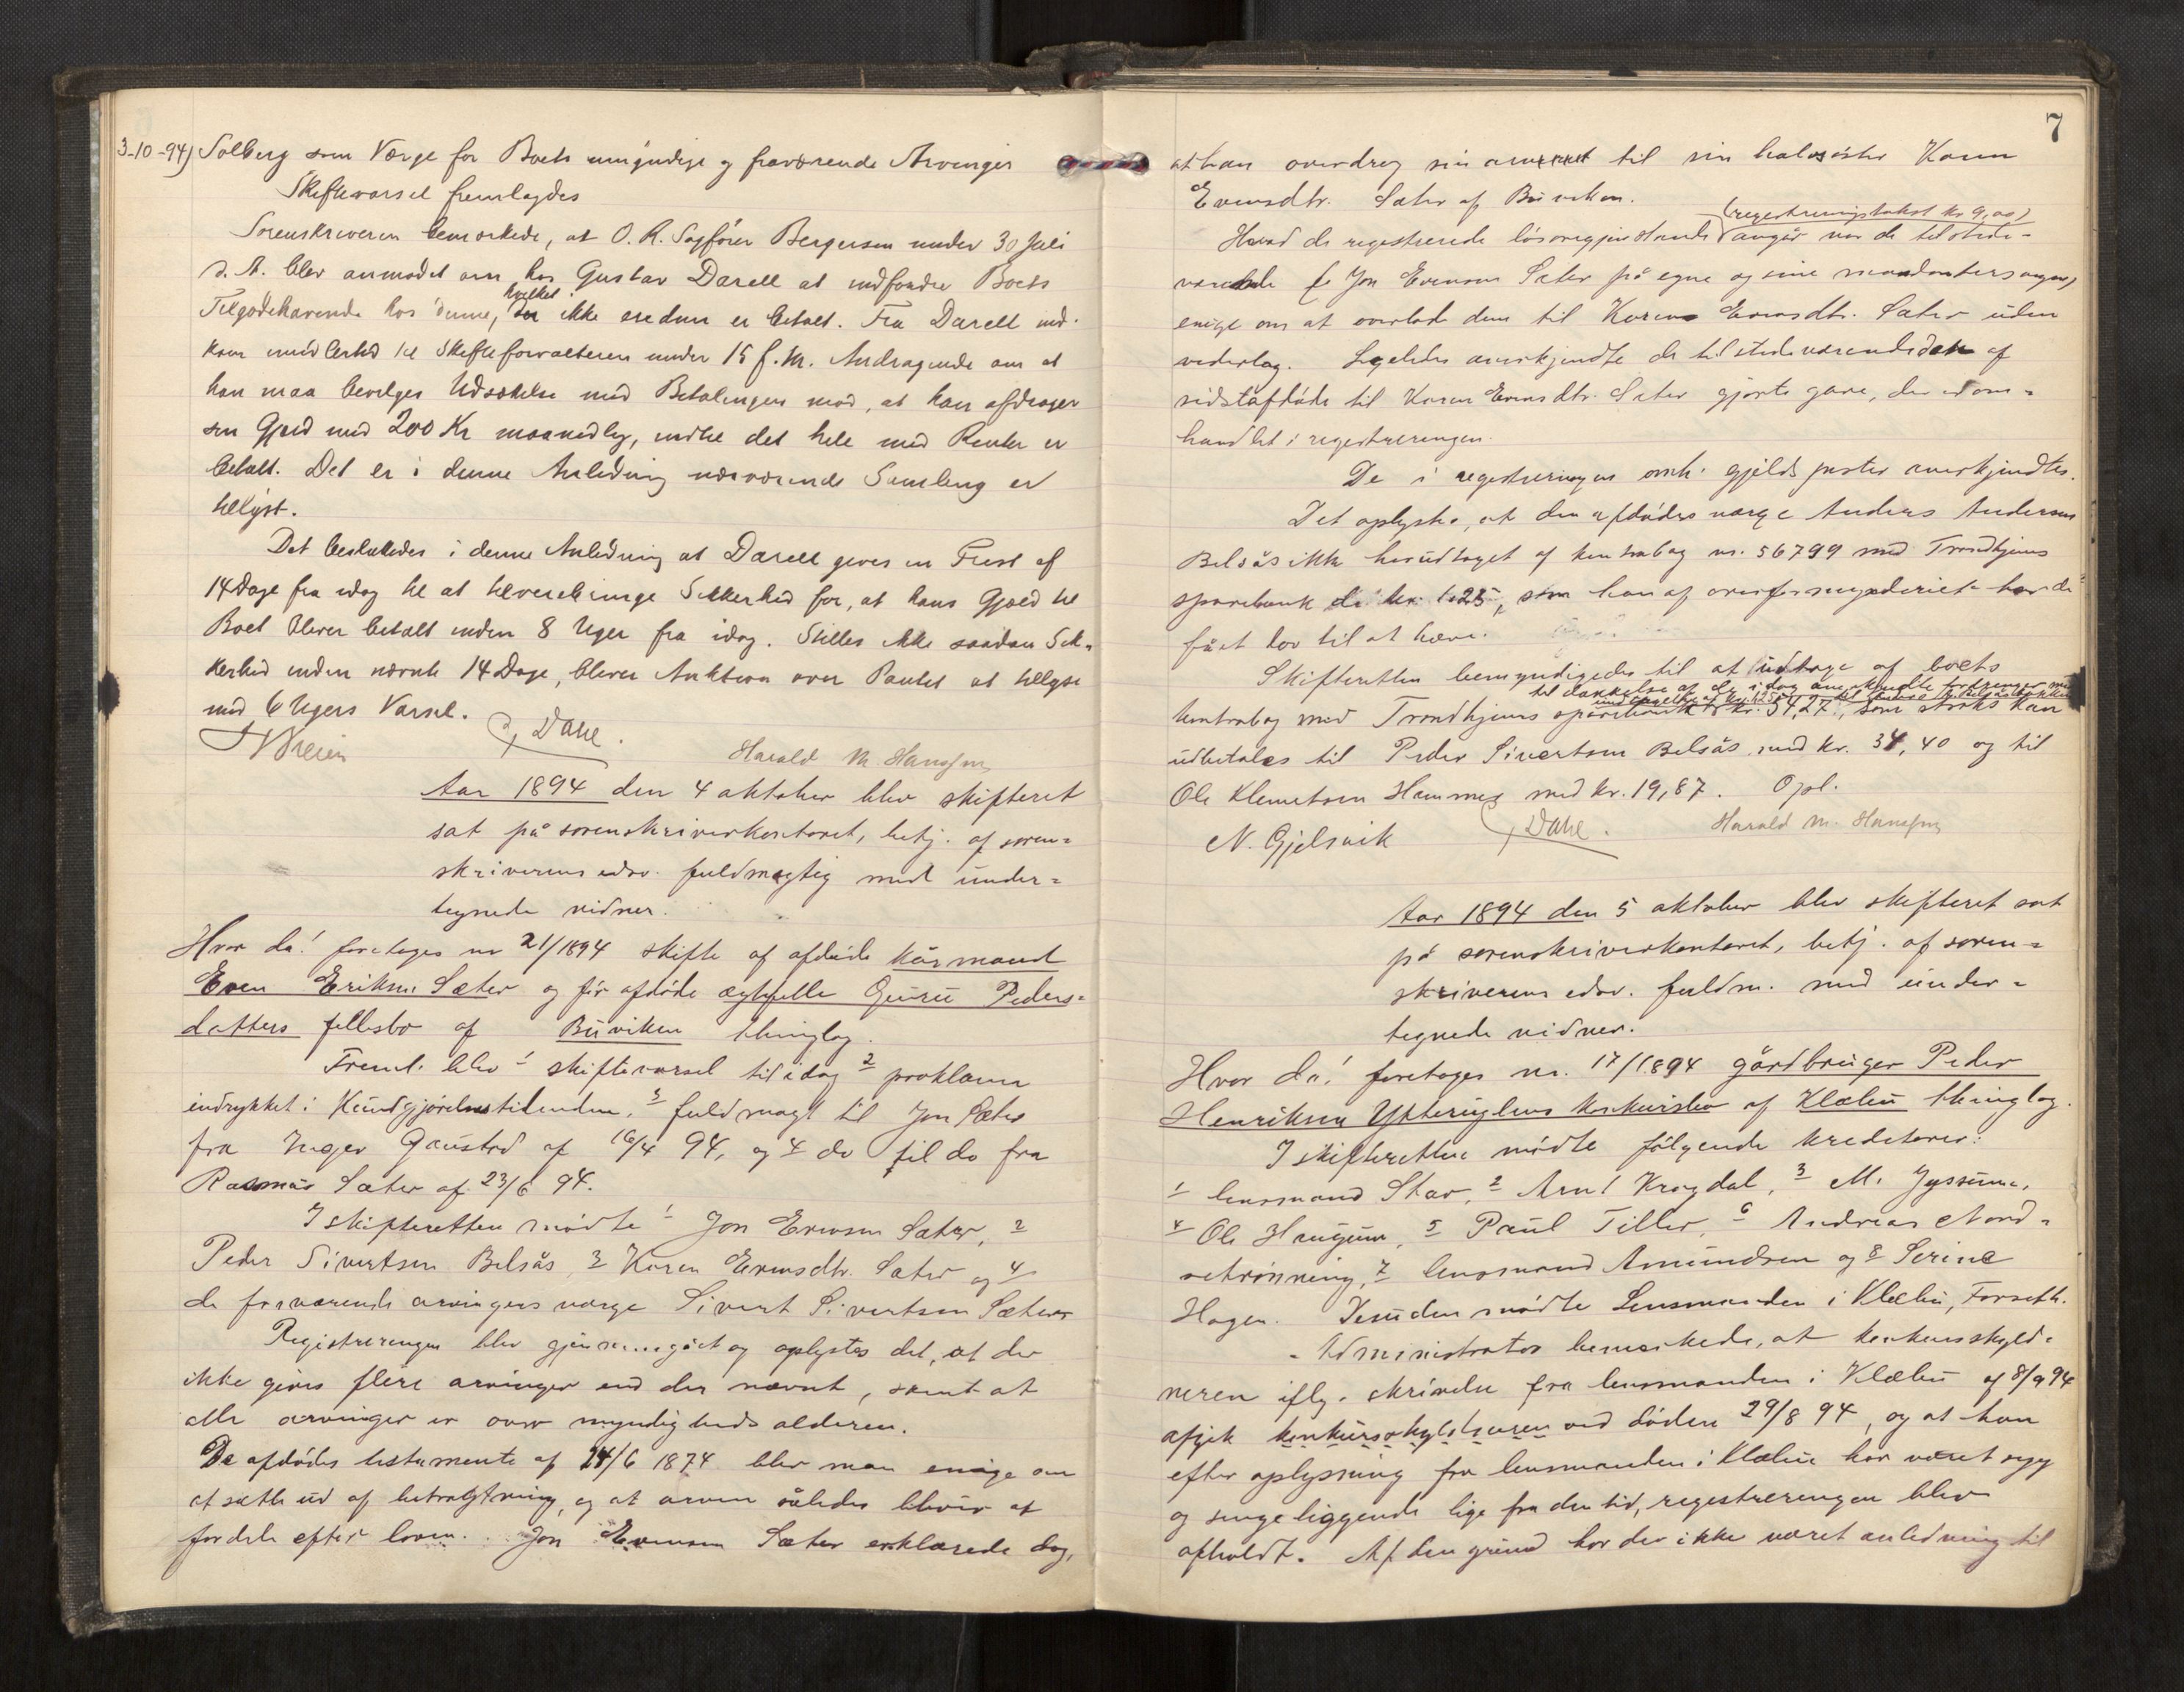 3-10-94) Solberg som Værge for Boets umyndige og fraværende Arvinger
Skiftevarsel fremlagdes
Sorenskriveren bemærkede, at O. R. Sagfører Bergersen under 30 Juli
d. A. blev anmodet om hos Gustav Darell at indfordre Boets
Tilgodehavende hos denne, hvilket ikke endnu er betalt. Fra Darell ind-
kom imidlertid til Skifteforvalteren under 15 f. M. Andragende om at
han maa bevilges Udsættelse med Betalingen mod, at han afdrager
sin Gjæld med 200 Kr maanedlig, indtil det hele med Renter er
betalt. Det er i denne Anledning nærværende Samling er
tillyst.
Det besluttedes i denne Anledning at Darell gives en Frist af
14 Dage fra idag til at tilveiebringe Sikkerhed for, at hans Gjæld til
Boet bliver betalt inden 8 Uger fra idag. Stilles ikke saadan Sik-
kerhed inden nævnte 14 Dage, bliver Auktion over Pantet at tillyse
med 6 Ugers Varsel.
Dahl.
Harald M. Hansen
Aar 1894 den 4 oktober blev skifteret
sat på sorenskriverkontoret, betj. af soren=
skriverens edsv. fuldmægtig med under=
tegnede vidner.
Hvor da! foretoges no 21/1894 skifte af afdøde kårmand
Even Eriksen Sæter og før afdøde ægtefelle Guru Peders=
datters fellesbo af Buviken thinglag.
Freml. blev 1 skiftevarsel til idag 2 proklama
indrykket i Kundgjørelsestidenden, 3 fuldmagt til Jon Sæter
fra Inger Gaustad af 16/4 94, og 4 do til do fra
Rasmus Sæter af 23/6 94.
I skifteretten mødte 1 Jon Evensen Sæter, 2
Peder Sivertsen Belsås, 3 Karen Evensdtr. Sæter og 4
de fraværende arvingers værge Sivert Sivertsen Sæter
Registreringen blev gjennemgået og oplystes det, at der
ikke gives flere arvinger end der nævnt, samt at
alle arvinger er over myndighedsalderen.
De afdødes testamente af 24/6 1874 blev man enige om
at sætte ud af betragtning, og at arven således bliver at
fordele efter loven. Jon Evensen Sæter erklærede dog,
7
at han overdrog sin arv til sin halvsøster Karen
Evensdtr. Sæter af Buviken.
(registreringstakst kr 9,00)
Hvad de registrerede løsøregjenstande angår var de tilstede-
værende (Jon Evensen Sæter på egne og sine mandanters vegne)
enige om at overlade dem til Karen Evensdtr. Sæter uden
vederlag. Ligeledes anerkjendte de tilstedeværende den af
sidstafdøde til Karen Evensdtr. Sæter gjorte gave, der er om=
handlet i registreringen.
De i registreringen omh. gjeldsposter anerkjendtes.
Det oplystes, at den afdødes værge Anders Andersen
Belsås ikke har udtaget af kontrabog nr. 56799 med Trondhjems
sparebank de kr. 1.25, som han af overformynderiet havde
fået lov til at hæve.
Skifteretten bemyndigedes til at udtage af boets
til dækkelse af de idag anerkjendte fordringer
kontrabog med Trondhjems sparebank kr. 54,27, som straks kan
udbetales til Peder Sivertsen Belsås med kr. 34,40 og til
Ole Klemetsen Hammer med kr. 19,87. Opl.
N. Gjelsvik
Dahl.
Harald M. Hansen
Aar 1894 den 5 oktober blev skifteret sat
på sorenskriverkontoret, betj. af soren=
skriverens edsv. fuldm. med under=
tegnede vidner.
Hvor da! foretoges no. 17/1894 gårdbruger Peder
Henriksen Ytteruglens konkursbo af Klæbu thinglag.
I skifteretten mødte følgende kreditorer:
1 lensmand Stav, 2 Arnt Krogdal, 3 M. Jyssum,
4 Ole Haugum, 5 Paul Tiller, 6 Andreas Nord=
setrønning, 7 lensmand Amundsen og 8 Serine
Hagen. Desuden mødte Lensmanden i Klæbu, Forseth.
Administrator bemærkede, at konkursskyld=
neren iflg. skrivelse fra lensmanden i Klæbu af 8/9 94
afgik konkursskyldneren ved døden 29/8 94, og at han
efter oplysning fra lensmanden i Klæbu har været syg
og sengeliggende lige fra den tid, registreringen blev
afholdt. Af den grund har der ikke været anledning til